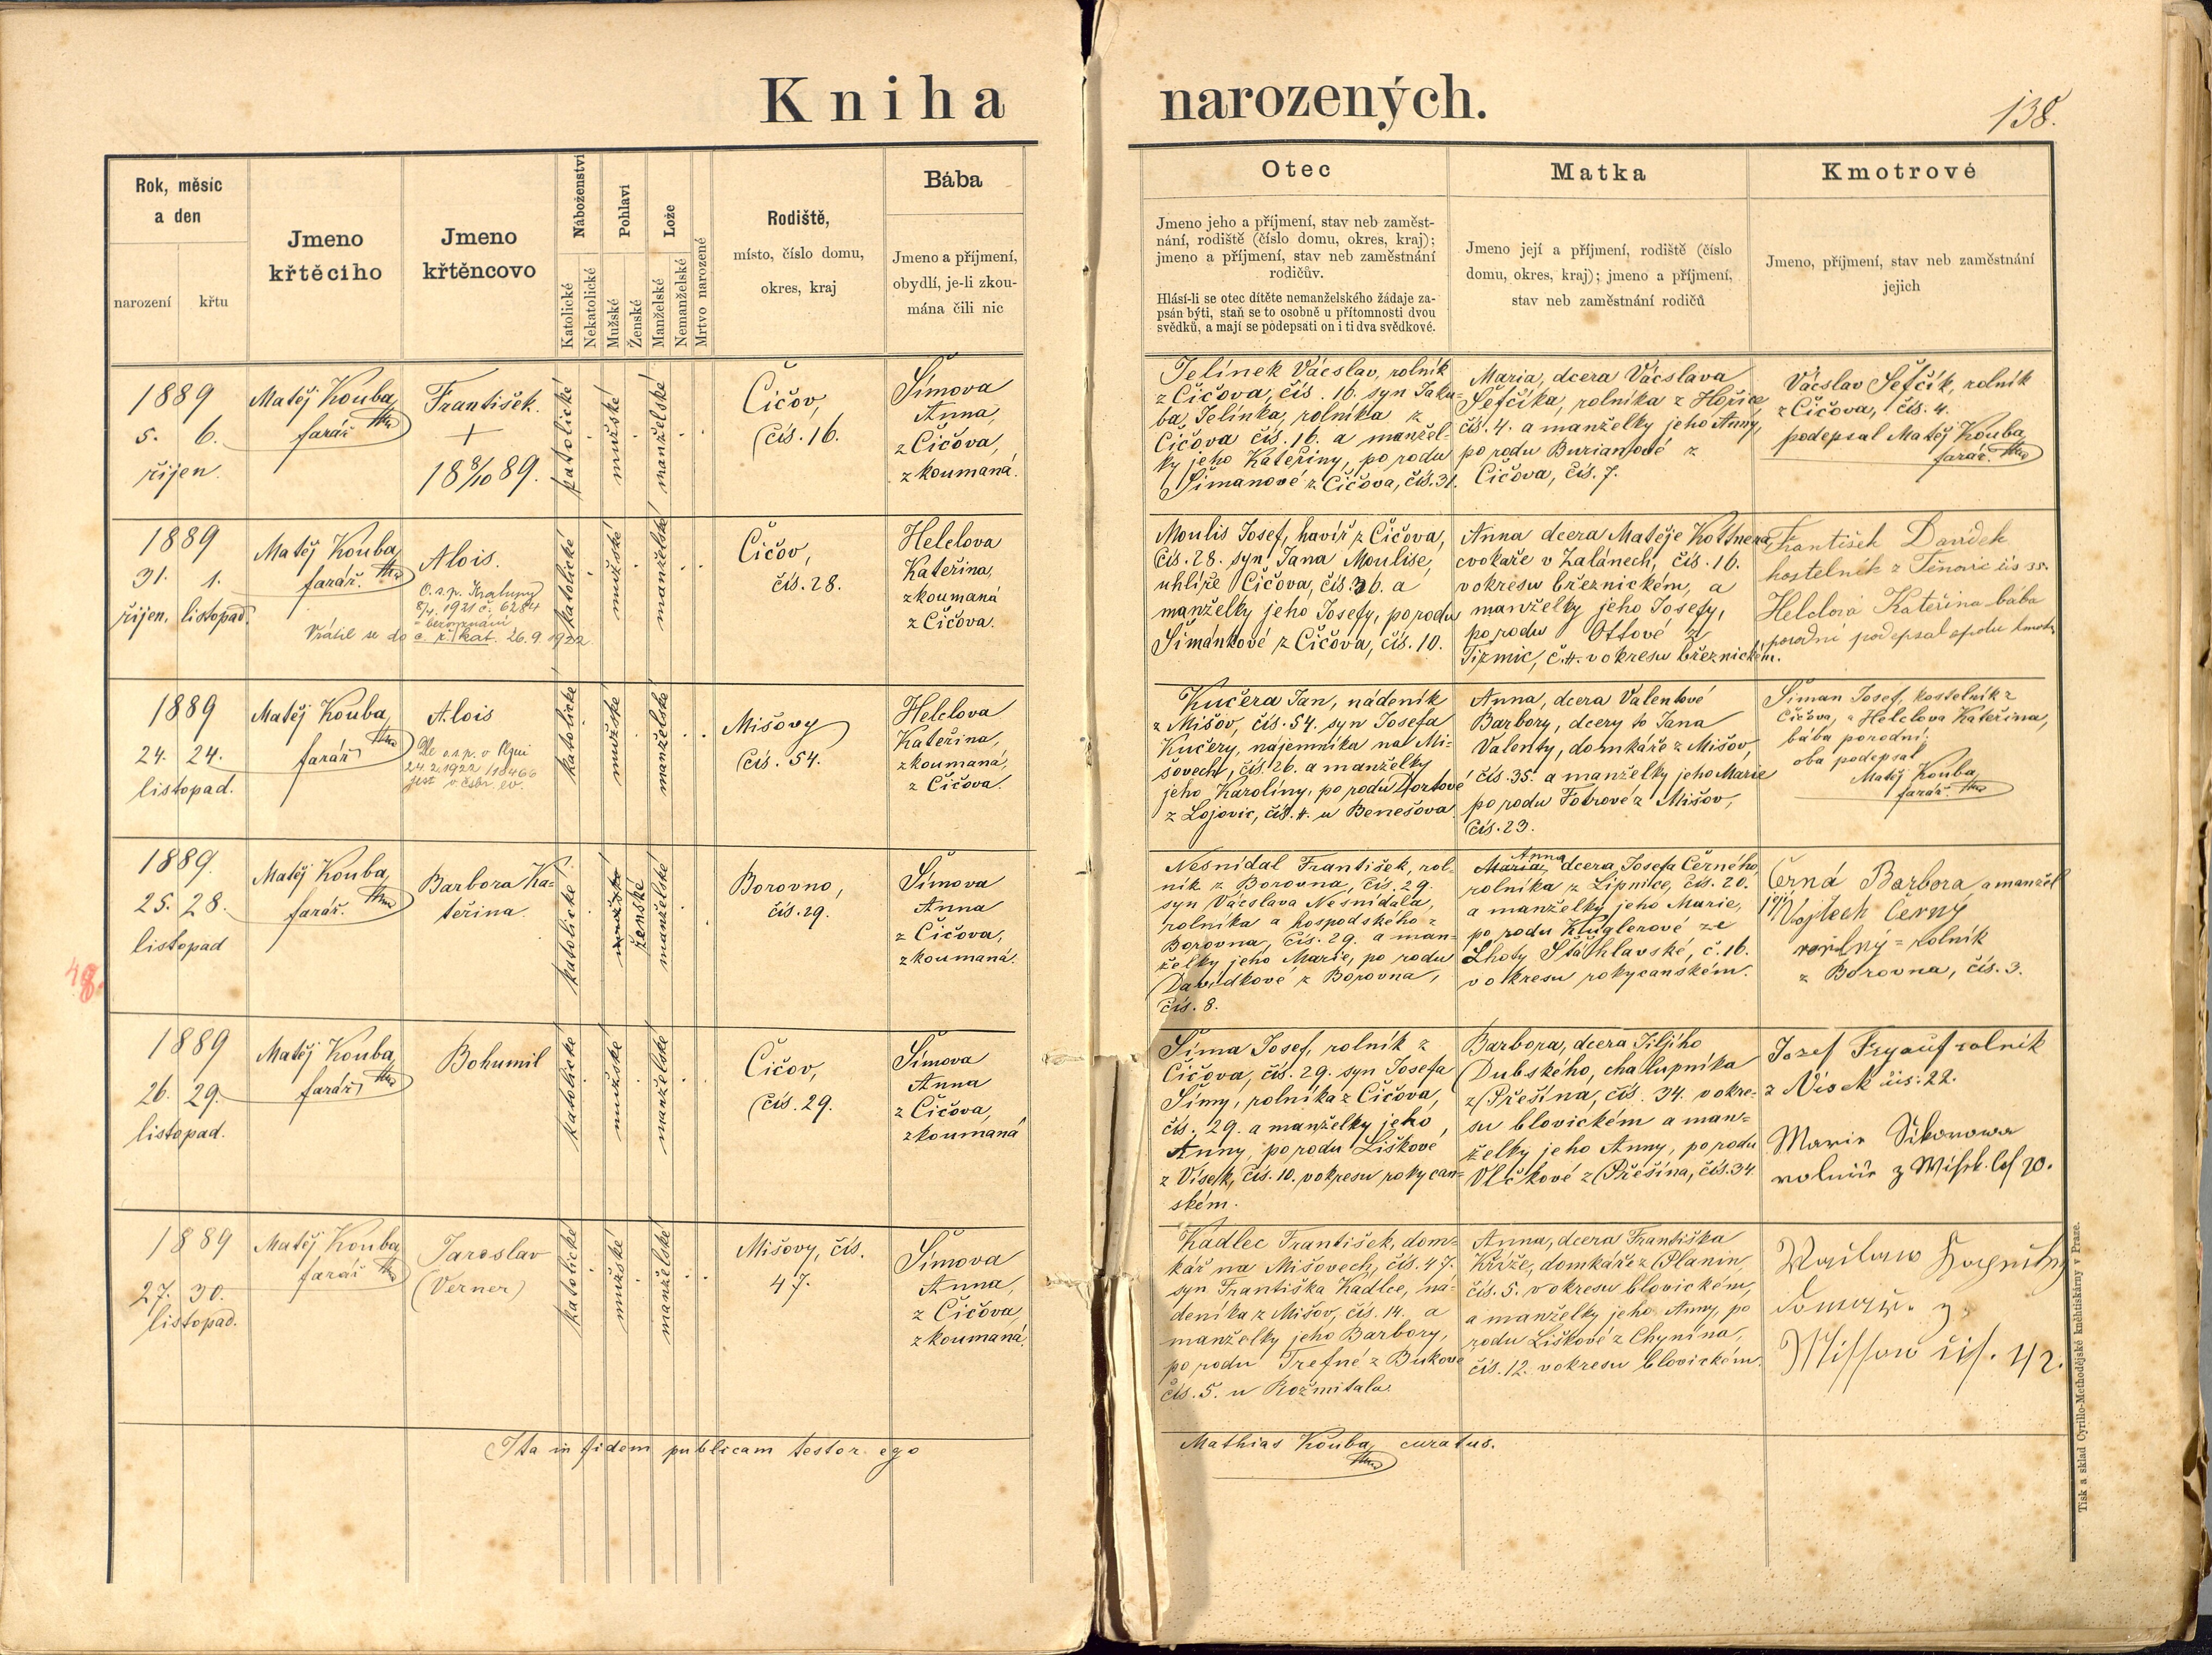 Kniha narozených.
138.
Rok, měsíc
a den
narození
křtu
Jmeno
křtěcího
Jmeno
křtěncovo
Náboženství
Katolické
Nekatolické
Pohlaví
Mužské
Ženské
Lože
Manželské
Nemanželské
Mrtvo narozené
Rodiště,
místo, číslo domu,
okres, kraj
Bába
Jmeno a příjmení,
obydlí, je-li zkou-
mána čili nic
Otec
Jmeno jeho a příjmení, stav neb zaměst-
nání, rodiště (číslo domu, okres, kraj);
jmeno a příjmení, stav neb zaměstnání
rodičův.
Hlásí-li se otec dítěte nemanželského žádaje za-
psán býti, staň se to osobně u přítomnosti dvou
svědků, a mají se podepsati on i ti dva svědkové.
Matka
Jmeno její a příjmení, rodiště (číslo
domu, okres, kraj); jmeno a příjmení,
stav neb zaměstnání rodičů
Kmotrové
Jmeno, příjmení, stav neb zaměstnání
jejich
1889
5. 6.
říjen.
Matěj Kouba,
farář
František.
+
18 8/10 89.
katolické
mužské
manželské
Čičov,
čís. 16.
Šímova
Anna,
z Čičova,
zkoumaná.
Jelínek Vácslav, rolník
z Čičova, čís. 16. syn Jaku-
ba Jelínka, rolníka z
Čičova čís. 16. a manžel-
ky jeho Kateřiny, po rodu
Šimanové z Čičova, čís. 31.
Maria, dcera Vácslava
Šefčíka, rolníka z Hořice
čís. 4. a manželky jeho Anny,
po rodu Burianové z
Čičova, čís. 7.
Vácslav Šefčík, rolník
z Čičova, čís. 4.
podepsal Matěj Kouba
farář.
1889
31. 1.
říjen. listopad.
Matěj Kouba,
farář.
Alois.
O. s. p. Kralupy
8/4. 1921 č. 6284
bez vyznání
Vrátil se do c. ř. kat. 26.9.1922.
katolické
mužské
manželské
Čičov,
čís. 28.
Helclova
Kateřina,
zkoumaná
z Čičova.
Moulis Josef, havíř z Čičova,
čís. 28. syn Jana Moulise,
uhlíře Čičova, čís. 36. a
manželky jeho Josefy, po rodu
Šimankové z Čičova, čís. 10.
Anna dcera Matěje Kottnera,
cvokaře v Zalánech, čís. 16.
v okresu březnickém, a
manželky jeho Josefy,
po rodu Ottové z
Tizmic, č. 4. v okresu březnickém.
František Davídek
kostelník z Těnovic čís 55.
Helclová Kateřina bába
porodní podepsal spolu kmotr
1889
24. 24.
listopad.
Matěj Kouba,
farář
Alois
Dle o.s.p. v Plzni
24.2.1922 /18466
jest v. českobr. ev.
katolické
mužské
manželské
Mišovy
čís. 54.
Helclova
Kateřina,
zkoumaná,
z Čičova.
Kučera Jan, nádeník
z Mišov, čís. 54. syn Josefa
Kučery, nájemníka na Mi-
šovech, čís. 26. a manželky
jeho Karoliny, po rodu Dortové
z Lojovic, čís. 4. u Benešova.
Anna, dcera Valentové
Barbory, dcery to Jana
Valenty, domkáře z Mišov,
čís. 35. a manželky jeho Marie
po rodu Fotrové z Mišov,
čís. 23.
Šiman Josef, kostelník z
Čičova, a Helclova Kateřina,
bába porodní:
oba podepsal
Matěj Kouba,
farář.
1889.
25. 28.
listopad
48.
Matěj Kouba,
farář.
Barbora Ka-
teřina.
katolické
mužské
ženské
manželské
Borovno,
čís. 29.
Šímova
Anna
z Čičova,
zkoumaná.
Nesnídal František, rol-
ník z Borovna, čís. 29.
syn Vácslava Nesnídala,
rolníka a hospodského z
Borovna, čís. 29. a man-
želky jeho Marie, po rodu
Davídkové z Borovna,
čís. 8.
Anna
Maria, dcera Josefa Černého,
rolníka z Lipnice, čís. 20.
a manželky jeho Marie,
po rodu Kluglerové ze
Lhoty Šťáhlavské, č. 16.
v okresu rokycanském.
Černá Barbora a manžel
její Vojtech Černý
rolník
z Borovna, čís. 3.
1889
26. 29.
listopad.
Matěj Kouba,
farář
Bohumil
katolické
mužské
manželské
Čičov,
čís. 29.
Šímova
Anna
z Čičova,
zkoumaná
Šíma Josef, rolník z
Čičova, čís. 29. syn Josefa
Šímy, rolníka z Čičova,
čís. 29. a manželky jeho
Anny, po rodu Liškové
z Vísek, čís. 10. v okresu rokycan-
ském.
Barbora, dcera Jiljího
Dubského, chalupníka
z Přešína, čís. 34. v okre-
su blovickém a man-
želky jeho Anny, po rodu
Vlčkové z Přešína, čís. 34.
Josef Fryauf rolník
z Vísek čís: 22.
Marie Sikorowa
1889
27. 30.
listopad.
Matěj Kouba,
farář
Jaroslav
(Verner)
katolické
mužské
manželské
Mišovy, čís.
47.
Šímova
Anna,
z Čičova,
zkoumaná.
Kadlec František, dom-
kář na Mišovech, čís. 47.
syn Františka Kadlce, ná-
deníka z Mišov, čís. 14. a
manželky jeho Barbory,
po rodu Trefné z Bukové
čís. 5. u Rožmitala.
Anna, dcera Františka
Kříže, domkáře z Planin,
čís. 5. v okresu blovickém,
a manželky jeho Anny, po
rodu Liškové z Chynína,
čís. 12. v okresu blovickém.
Missow čís. 42.
Ita in fidem publicam testor ego Mathias Kouba, curatus.
Tisk a sklad Cyrillo-Methodějské knihtiskárny v Praze.